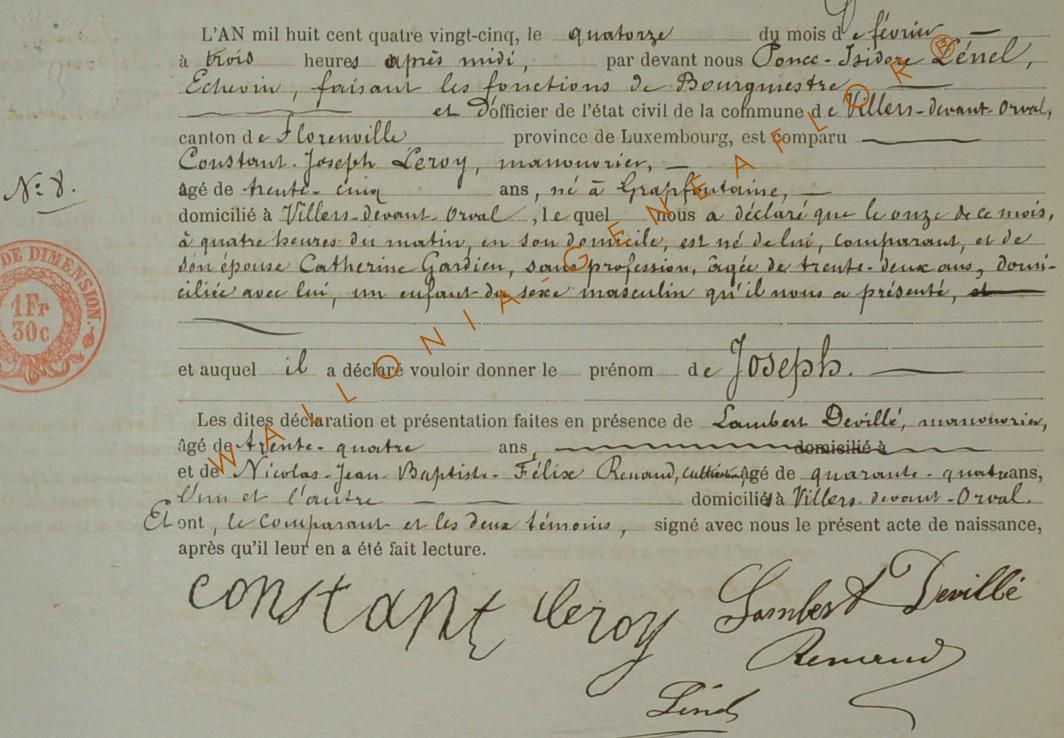 L'AN mil huit cent quatre vingt-cinq, le quatorze du mois de février
à trois heures après midi, par devant nous Ponce-Isidore Lénel,
Echevin, faisant les fonctions de Bourgmestre
et d'officier de l'état civil de la commune de Villers-devant-Orval,
canton de Florenville province de Luxembourg, est comparu
Constant-Joseph Leroy, manouvrier,
N° 8.
âgé de trente-cinq ans, né à Grapfontaine,
domicilié à Villers-devant-Orval, lequel nous a déclaré que le onze de ce mois,
à quatre heures du matin, en son domicile, est né de lui, comparant, et de
son épouse Catherine Gardien, sans profession, âgée de trente-deux ans, domi-
ciliée avec lui, un enfant du sexe masculin qu'il nous a présenté, et
DE DIMENSION.
1Fr
30c
et auquel il a déclaré vouloir donner le prénom de Joseph.
Les dites déclaration et présentation faites en présence de Lambert Devillé, manouvrier,
âgé de trente-quatre ans, domicilié à
et de Nicolas-Jean-Baptiste-Félix Renaud, cultivateur, âgé de quarante-quatre ans,
l'un et l'autre domiciliés à Villers-devant-Orval.
Et ont, le comparant et les deux témoins, signé avec nous le présent acte de naissance,
après qu'il leur en a été fait lecture.
constant leroy Lambert Devillé
Renaud
Lénel
WALLONIA-GENEAFLOR®